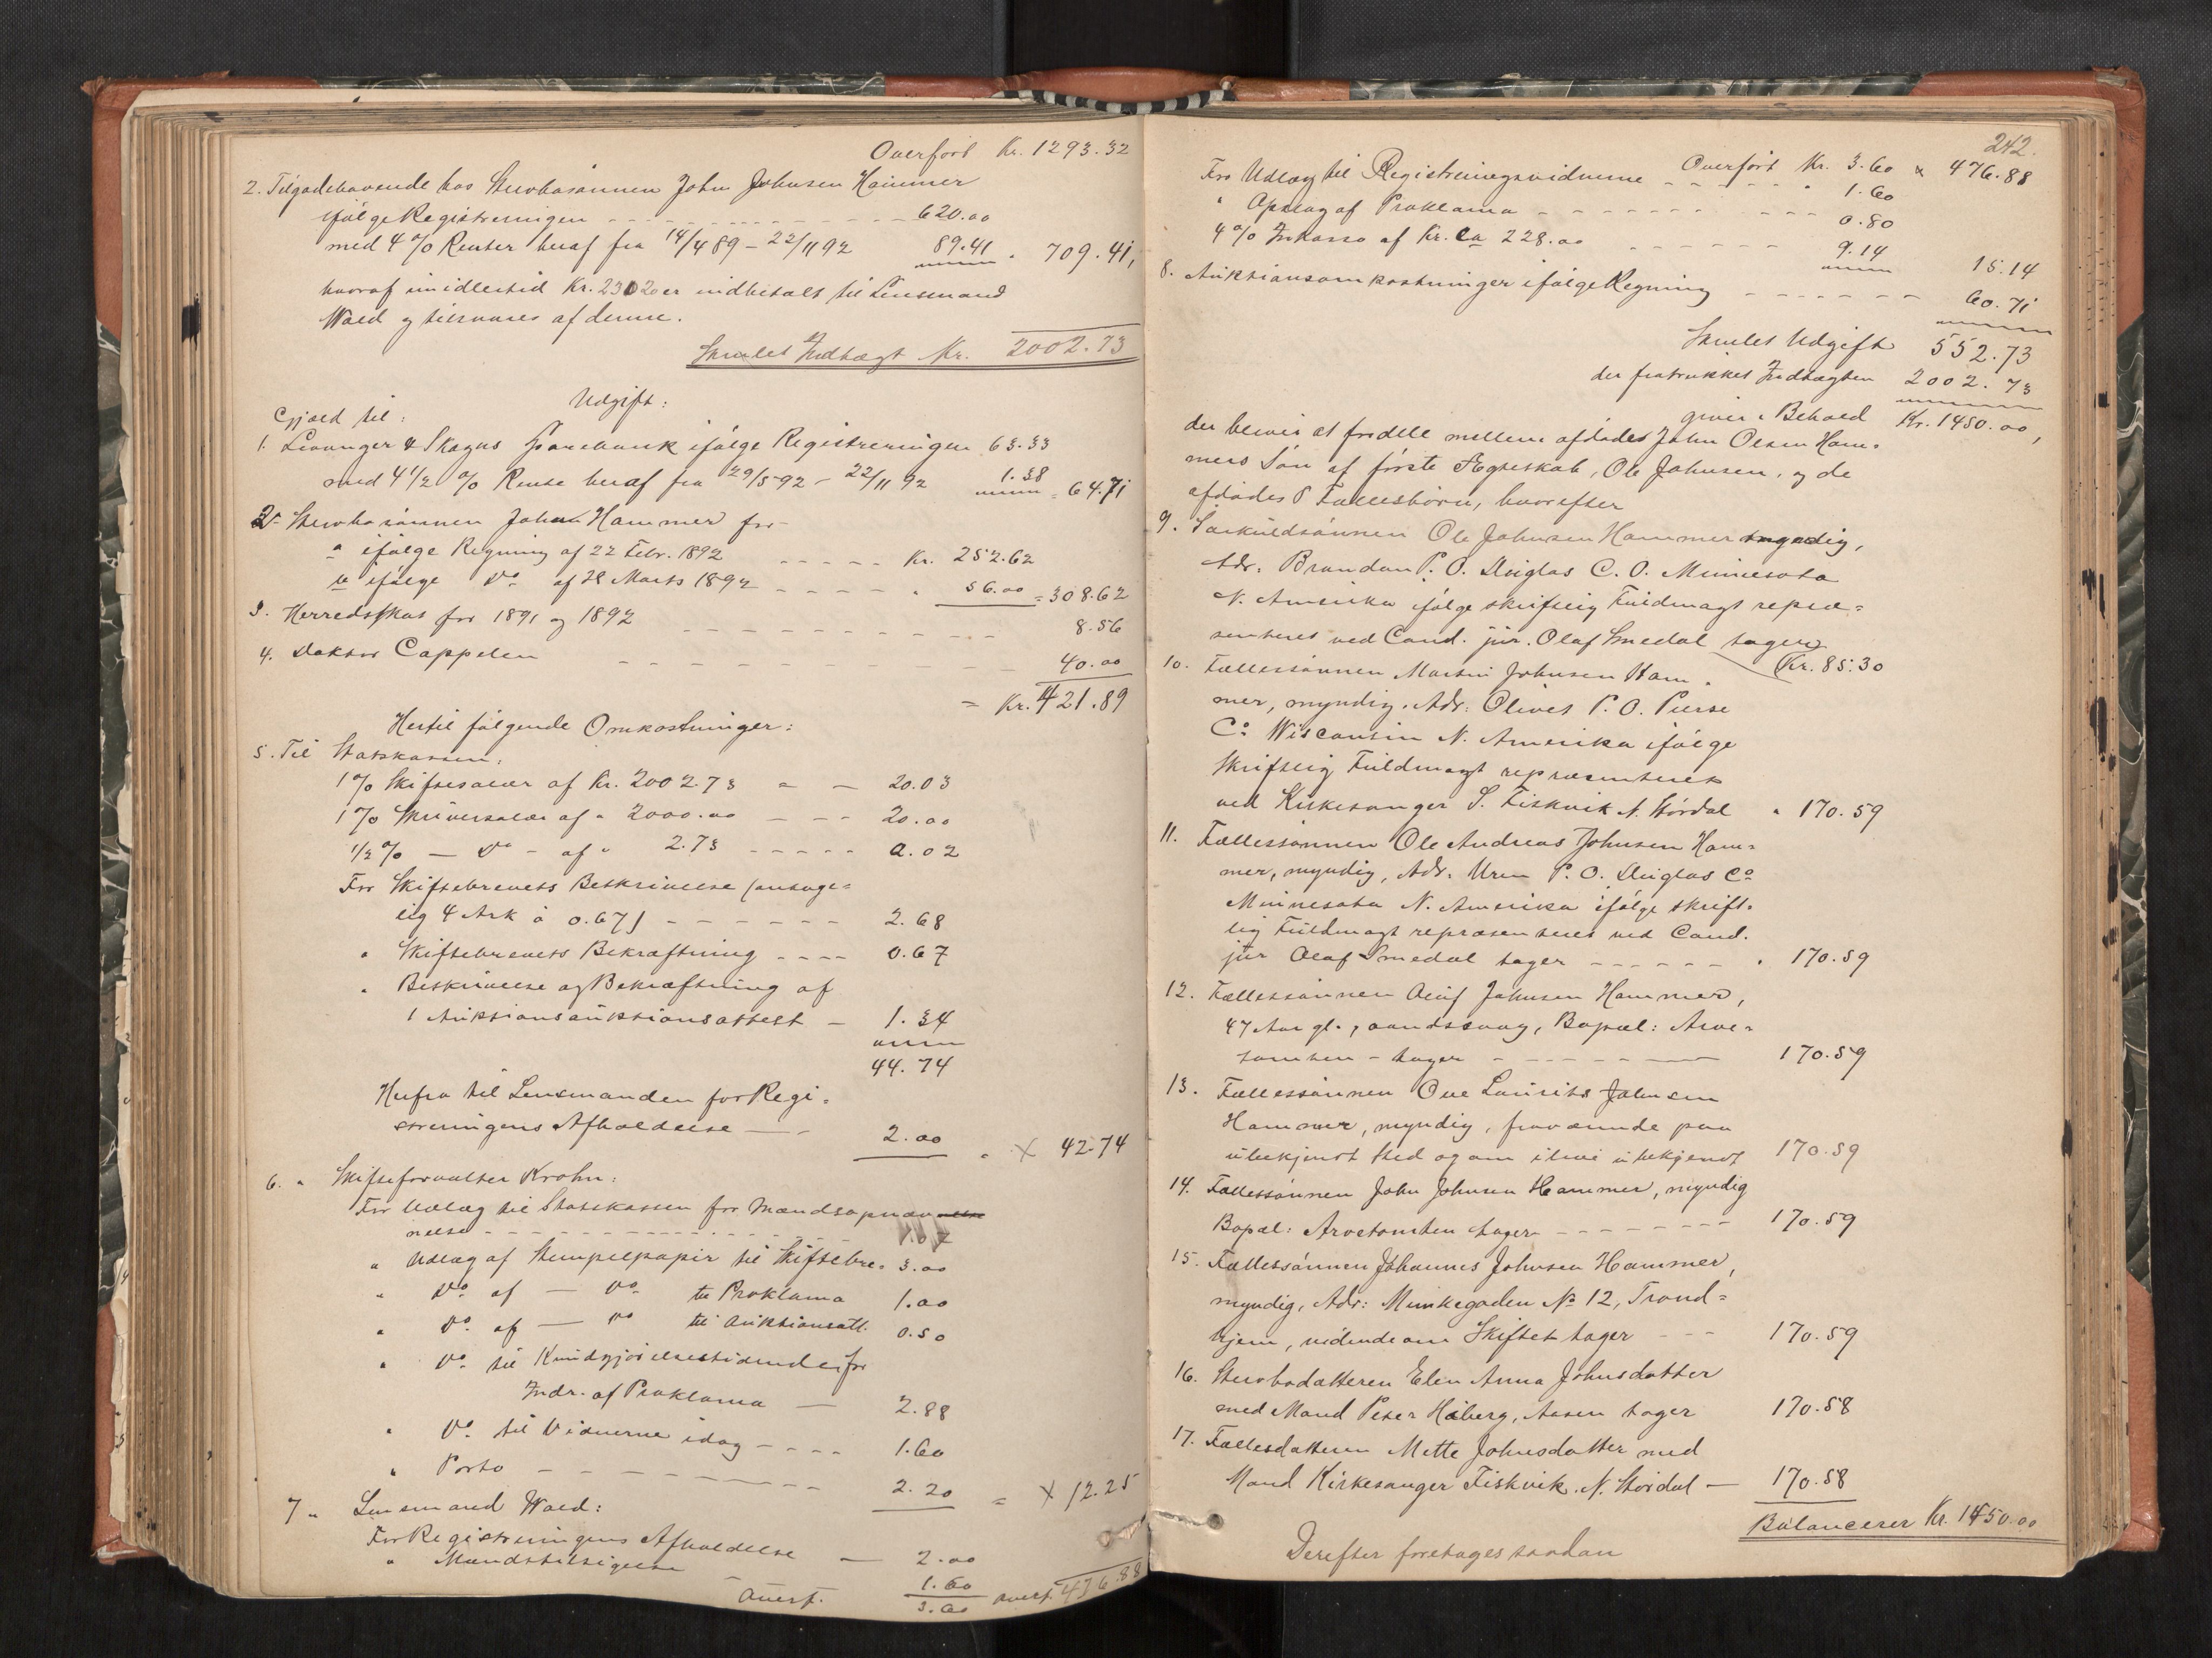 Overført Kr. 1293.32
2. Tilgodehavende hos Stervbosønnen John Johnsen Hammer
ifølge Registreringen - - - 620.00
med 4 % Renter heraf fra 14/4 89 - 22/11 92 89.41 " 709.41,
hvoraf imidlertid Kr. 230.20 er indbetalt til Lensmand
Wold og tilsvares af denne.
Samlet Indtægt Kr. 2002.73
Udgift:
Gjæld til:
1. Levanger & Skogns Sparebank ifølge Registreringen 63.33
med 4 1/2 % Rente heraf fra 29/5 92 - 22/11 92 1.38 = 64.71
2. Stervbosønnen John Hammer for
a ifølge Regning af 22 Febr. 1892 - - - Kr. 252.62
b ifølge Do af 28 Marts 1892 - - - " 56.00 = 308.62
3. Herredsskat for 1891 og 1892 - - - 8.56
4. Doktor Cappelen - - - 40.00
= Kr. 421.89
Hertil følgende Omkostninger:
5. Til Statskassen:
1 % Skiftesalær af Kr. 2002.73 = — 20.03
1 % Skriversalær af " 2000.00 — - - 20.00
1/2 % — Do - af " 2.73 - - - 0.02
For Skiftebrevets Beskrivelse (antage-
lig 4 Ark à 0.67) - - - 2.68
" Skiftebrevets Bekræftning - - - 0.67
" Beskrivelse og Bekræftning af
1 Auktionsauktionsattest — 1.34
44.74
Herfra til Lensmanden for Regi-
streringens Afholdelse — - 2.00 " × 42.74
6. " Skifteforvalter Krohn:
For Udlæg til Statskassen for Mændsopnæv
nelse - - -
" Udlæg af Stempelpapir til Skiftebre. 3.00
" Do af — Do til Proklama 1.00
" Do af — Do til Auktionsatt. 0.50
" Do til Kundgjørelsestidende for
Indr. af Proklama — 2.88
" Do til Vidnerne idag - - - 1.60
" Porto - - - 2.20 = × 12.25
7 " Lensmand Wold:
For Registreringens Afholdelse — 2.00
" Mændstilsigelse - 1.60
Overf. 3.60 Overf. 476.88
242.
Overført Kr. 3.60 × 476.88
For Udlæg til Registreringsvidnerne - - - " 1.60
" Opslag af Proklama - - - 0.80
4 % Inkasso af Kr. ca 228.00 - - - 9.14 15.14
8. Auktionsomkostninger ifølge Regning - - - 60.71
Samlet Udgift 552.73
der fratrukket Indtægten 2002.73
giver i Behold Kr. 1450.00,
der bliver at fordele mellem afdøde John Olsen Ham-
mers Søn af første Ægteskab, Ole Johnsen, og de
afdødes 8 Fællesbørn, hvorefter
9. Særkuldsønnen Ole Johnsen Hammer myndig,
Adr. Brandon P. O. Duglas C. O. Minnesota
N. Amerika ifølge skriftlig Fuldmagt repræ-
senteres ved Cand. jur. Olaf Smedal tager Kr. 85.30
10. Fællessønnen Martin Johnsen Ham-
mer, myndig. Adr: Olivet P. O. Pierse
Co Wisconsin N. Amerika ifølge
Skriftlig Fuldmagt repræsenteret
ved Kirkesanger S. Fiskvik N. Størdal " 170.59
11. Fællessønnen Ole Andreas Johnsen Ham-
mer, myndig, Adr. Uren P. O. Duglas Co
Minnesota N. Amerika ifølge skrift-
lig Fuldmagt repræsenteres ved Cand.
jur Olaf Smedal tager - - - " 170.59
12. Fællessønnen Oluf Johnsen Hammer,
47 Aar gl., aandssvag, Bopæl: Arve-
tomten - tager - - - 170.59
13. Fællessønnen Ove Laurits Johnsen
Hammer, myndig, fraværende paa
ubekjendt Sted og om ilive ubekjendt 170.59
14. Fællessønnen John Johnsen Hammer, myndig
Bopæl: Arvetomten tager - - - 170.59
15. Fællessønnen Johannes Johnsen Hammer,
myndig, Adr: Munkegaden No 12, Trond-
hjem, vidende om Skiftet tager - - - 170.59
16. Stervbodatteren Elen Anna Johnsdatter
med Mand Peter Høiberg, Aasen tager 170.58
17. Fællesdatteren Mette Johnsdatter med
Mand Kirkesanger Fiskvik, N. Størdal — 170.58
Balancerer Kr. 1450.00
Derefter foretages saadan